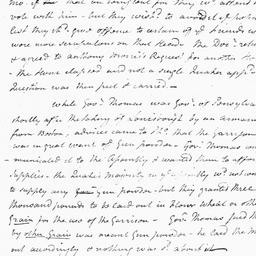 vote with him — but they wish'd to
lest they sh'd give offence to certain of y'r Friends w
were more scrupulous on that Head. The Doc'r
& agreed to Anthony Morris's Request for another Ho
— The Hour elapsed and not a single Quaker
Question was then put & carried —
while Gov'r Thomas was Gov'r of Pensylva
shortly after the taking of Louisbourgh by an armam
from Boston, advices came to Ph'a that the Garrison
was in great want of Gun powder — Gov'r Thomas
municated it to the Assembly & wanted them to
Supplies. the Quaker Majority in y'e Assembly w'd not con
to supply any Gun powder, but they granted three
thousand pounds to be laid out in Flour Wheat or other
Grain for the use of the Garrison — Gov'r Thomas said th
by other Grain was meant Gun powder — he laid the m
out accordingly & nothing was s'd about it